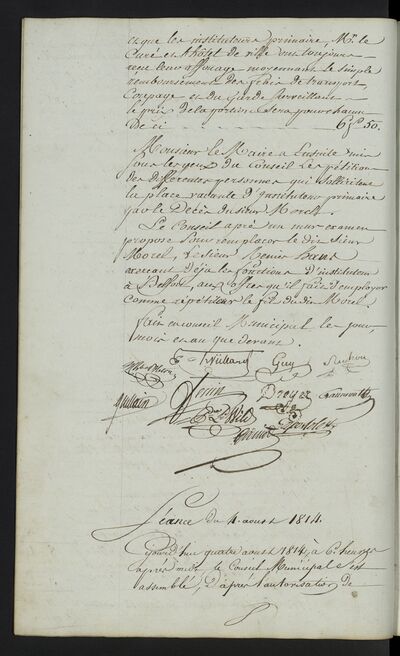 et que les instituteurs primaire, Mr. le
Curé et l'hôtel de ville ont toujours
reçu leur affouage moyennant le simple
remboursement des frais de transport,
Cordage et du garde surveillant
le prix de la portion sera pour chacun
De ci 6 50.
Monsieur le Maire a Ensuite mis
sous les yeux du Conseil les pétitions
des différentes personnes qui Sollicitent
la place vacante d'Instituteur primaire
par le Décès du sieur Morel.
Le Conseil après un mur examen
propose pour remplacer le dit Sieur
Morel, Le Sieur
exercant déja les fonctions d'instituteur
à Belfort, aux offres qu'il fait d'employer
comme répétiteur le fils du dit Morel.
Fait en conseil Municipal les jour
mois et an que devant.
Guy
Dreyer
Séance du 4 aoust 1814.
Cejourd'hui quatre aoust 1814, à 6 heures
après midi le Conseil Municipal s'est
assemblé, d'après l'autorisation de